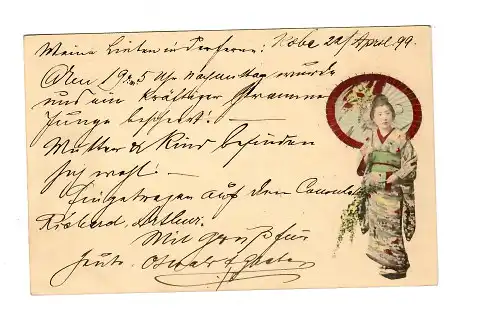 Meine Lieben in der Ferne: Kobe 22/ April 99.
Am 19. 5 Uhr Nachmittag wurde
uns ein kräftiger strammer
Junge beschert. —
Mutter & Kind befinden
sich wohl —
Eingetragen auf dem Consulat
Richard, Arthur.
Mit Gruß für
heute